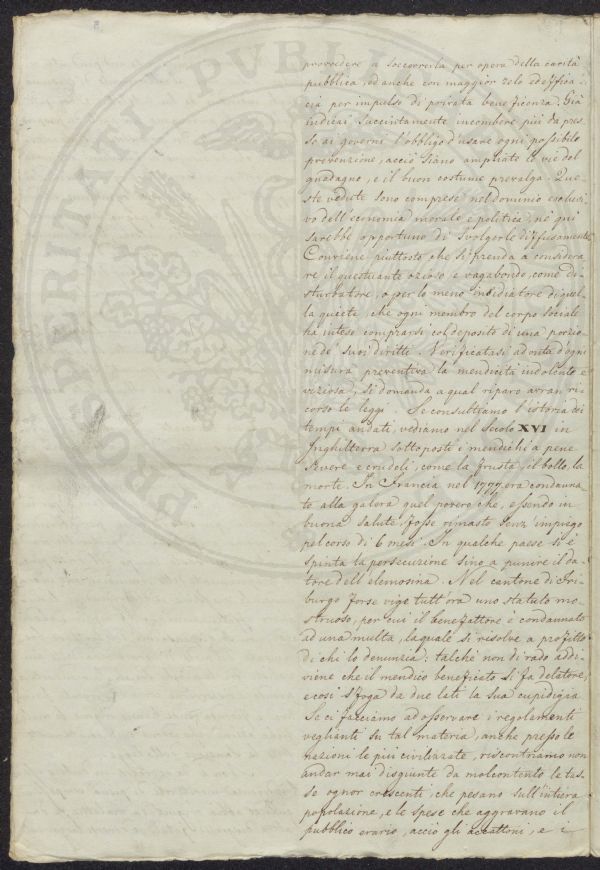 provvedere a soccorrerla per opera della carità
pubblica, ed anche con maggior zelo ed effica-
cia per impulso di privata beneficenza. Già
indicai succintamente incombere più da pres-
so ai governi l'obbligo d'usare ogni possibile
prevenzione, acciò siano ampliate le vie del
guadagno, e il buon costume prevalga. Que-
ste vedute sono comprese nel dominio esclusi-
vo dell'economia morale e politica, nè qui
sarebbe opportuno di svolgerle diffusamente.
Conviene piuttosto che si prenda a considera-
re il questuante ozioso e vagabondo, come di-
sturbatore, o per lo meno insidiatore di quel-
la quiete, che ogni membro del corpo sociale
ha inteso comprarsi col deposito di una porzio-
ne de' suoi diritti. Verificatasi ad onta d'ogni
misura preventiva la mendicità indolente e
viziosa, si domanda a qual riparo avran ri-
corso le leggi. Se consultiamo l'istoria dei
tempi andati, vediamo nel Secolo XVI in
Inghilterra sottoposti i mendichi a pene
severe e crudeli, come la frusta, il bollo, la
morte. In Francia nel 1777 era condanna-
to alla galera quel povero che, essendo in
buona salute, fosse rimasto senz'impiego
pel corso di 6 mesi. In qualche paese si è
spinta la persecuzione sino a punire il da-
tore dell'elemosina. Nel cantone di Fri-
burgo forse vige tutt'ora uno statuto mo-
struoso, per cui il benefattore è condannato
ad una multa, la quale si risolve a profitto
di chi lo denunzia: talchè non di rado addi-
viene che il mendico beneficato si fa delatore,
e così sfoga da due lati la sua cupidigia.
Se ci facciamo ad osservare i regolamenti
veglianti su tal materia, anche presso le
nazioni le più civilizzate, riscontriamo non
andar mai disgiunte da malcontento le tas-
se ognor crescenti, che pesano sull'intiera
popolazione, e le spese che aggravano il
pubblico erario, acciò gli accattoni, e i